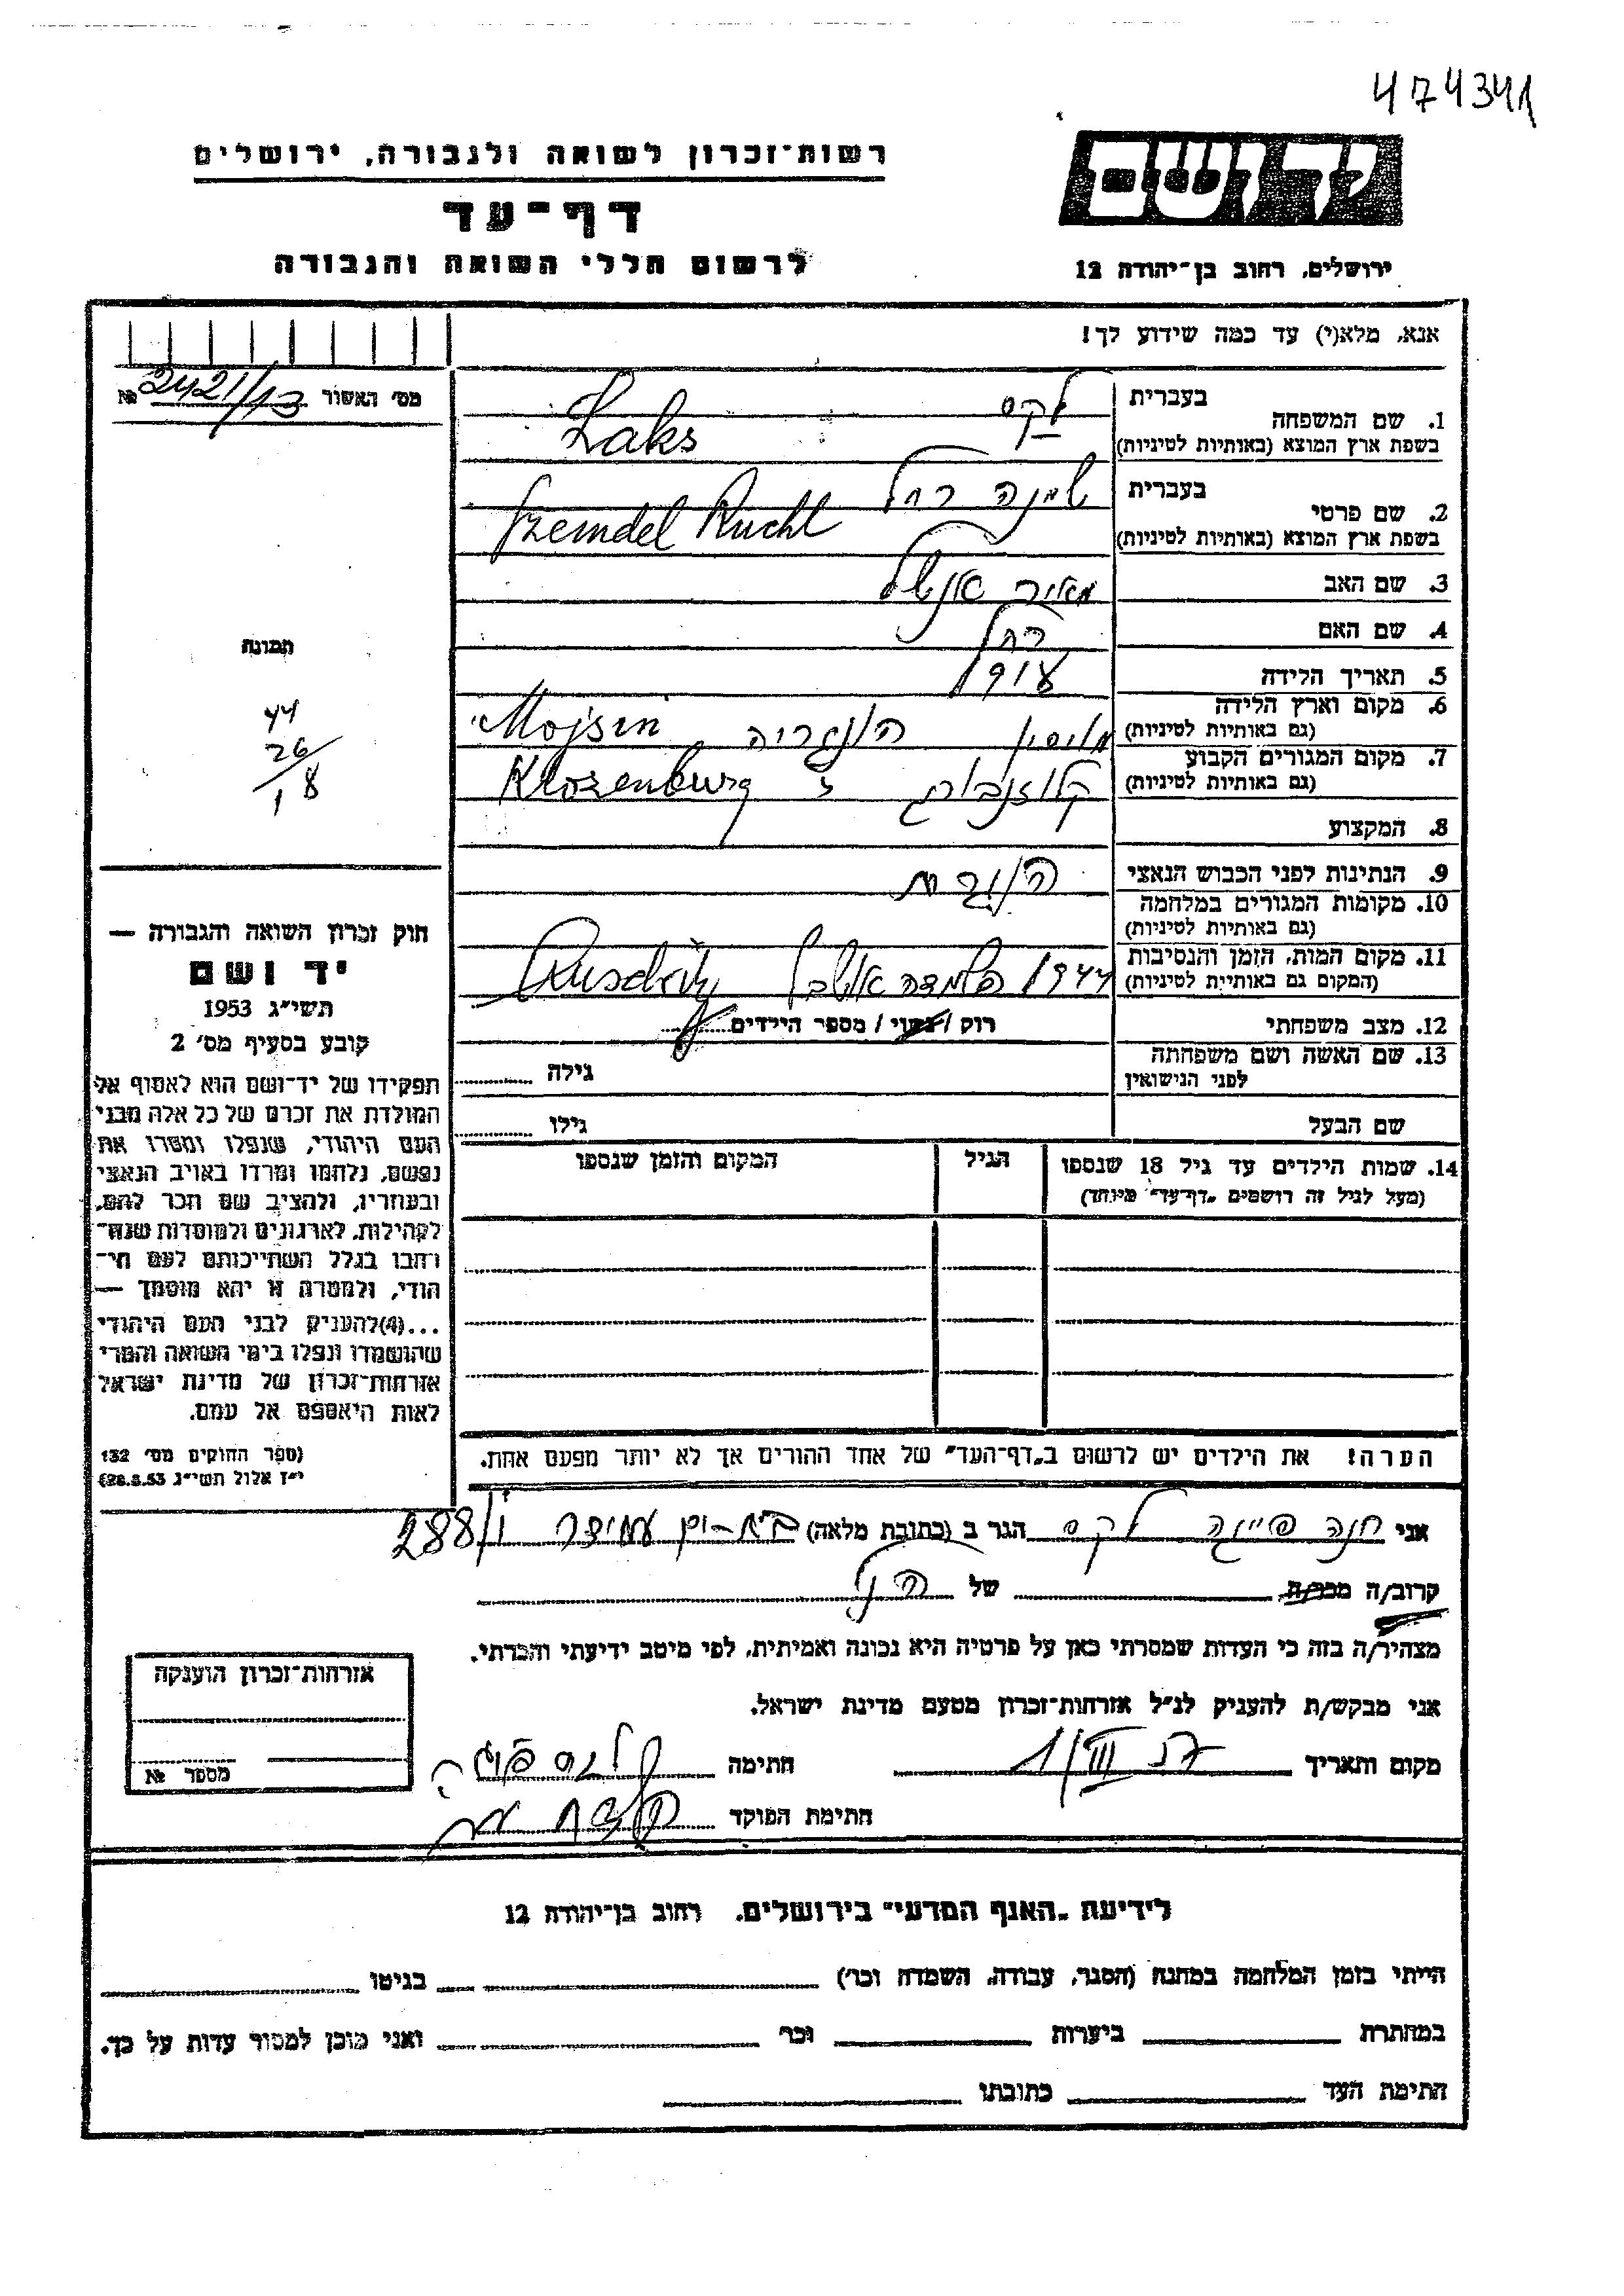 474341
יד ושם
רשות־זכרון לשואה ולגבורה, ירושלים
דף־עד
לרשום חללי השואה והגבורה
ירושלים, רחוב בן־יהודה 12
אנא, מלא(י) עד כמה שידוע לך!
מס׳ האשור 2421/13 №
1. שם המשפחה
בעברית לקס
בשפת ארץ המוצא (באותיות לטיניות) Laks
2. שם פרטי
בעברית רחל
בשפת ארץ המוצא (באותיות לטיניות) Ruchl
3. שם האב מאיר אנשל
4. שם האם רחל
5. תאריך הלידה
6. מקום וארץ הלידה
(גם באותיות לטיניות) מויסין הונגריה Mojsin
7. מקום המגורים הקבוע
(גם באותיות לטיניות) קלוזנבורג Klozenburg
8. המקצוע
9. הנתינות לפני הכבוש הנאצי
10. מקומות המגורים במלחמה
(גם באותיות לטיניות)
11. מקום המות, הזמן והנסיבות
(המקום גם באותיות לטיניות) 1944
12. מצב משפחתי רווק / נשוי / מספר הילדים
13. שם האשה ושם משפחתה
לפני הנישואין
גילה
שם הבעל גילו
14. שמות הילדים עד גיל 18 שנספו
(מעל לגיל זה רושמים „דף־עד״ מיוחד)
הגיל
המקום והזמן שנספו
תמונה
44
26
1 8
חוק זכרון השואה והגבורה —
יד ושם
תשי״ג 1953
קובע בסעיף מס׳ 2
תפקידו של יד־ושם הוא לאסוף אל
המולדת את זכרם של כל אלה מבני
העם היהודי, שנפלו ומסרו את
נפשם, נלחמו ומרדו באויב הנאצי
ובעוזריו, ולהציב שם וזכר להם,
לקהילות, לארגונים ולמוסדות שנח־
רחבו בגלל השתייכותם לעם הי־
הודי, ולמטרה זו יהא מוסמך —
...(4)להעניק לבני העם היהודי
שהושמדו ונפלו בימי השואה והמרי
אזרחות־זכרון של מדינת ישראל
לאות היאספם אל עמם.
(ספר החוקים מס׳ 132
י״ז אלול תשי״ג 28.8.53)
הערה! את הילדים יש לרשום ב„דף־העד״ של אחד ההורים אך לא יותר מפעם אחת.
אני חנה פייגה לקס הגר ב (כתובת מלאה) בת-ים עמידר 288/
קרוב/ה מכר/ה של הנ״ל
מצהיר/ה בזה כי העדות שמסרתי כאן על פרטיה היא נכונה ואמיתית, לפי מיטב ידיעתי והכרתי.
אני מבקש/ת להעניק לנ״ל אזרחות־זכרון מטעם מדינת ישראל.
מקום ותאריך 1/III 57 חתימה
חתימת הפוקד
אזרחות־זכרון הוענקה
מספר №
לידיעת „האגף המדעי״ בירושלים, רחוב בן־יהודה 12
הייתי בזמן המלחמה במחנה (הסגר, עבודה, השמדה וכו׳) בגיטו
במחתרת ביערות וכו׳ ואני מוכן למסור עדות על כך.
חתימת העד כתובתו